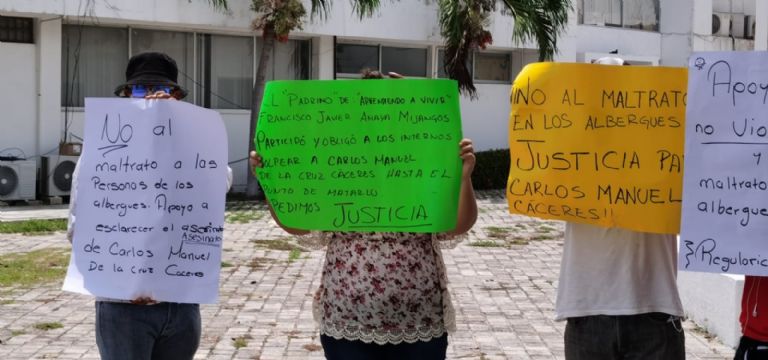 No al
maltrato a las
Personas de los
albergues. Apoyo a
esclarecer el asesinato
ASESINATO
de Carlos Manuel
De la Cruz Caceres
EL "PADRINO" DE "APRENDIENDO A VIVIR"
FRANCISCO JAVIER ANAYA MIJANGOS
PARTICIPÓ Y OBLIGÓ A LOS INTERNOS
GOLPEAR A CARLOS MANUEL
DE LA CRUZ CÁCERES HASTA EL
PUNTO DE MATARLO
PEDIMOS JUSTICIA
NO AL MALTRATO
EN LOS ALBERGUES
JUSTICIA PA
CARLOS MANUEL
CACERES!!
Apoy
no Viol
y
maltra
albergue
Regularic